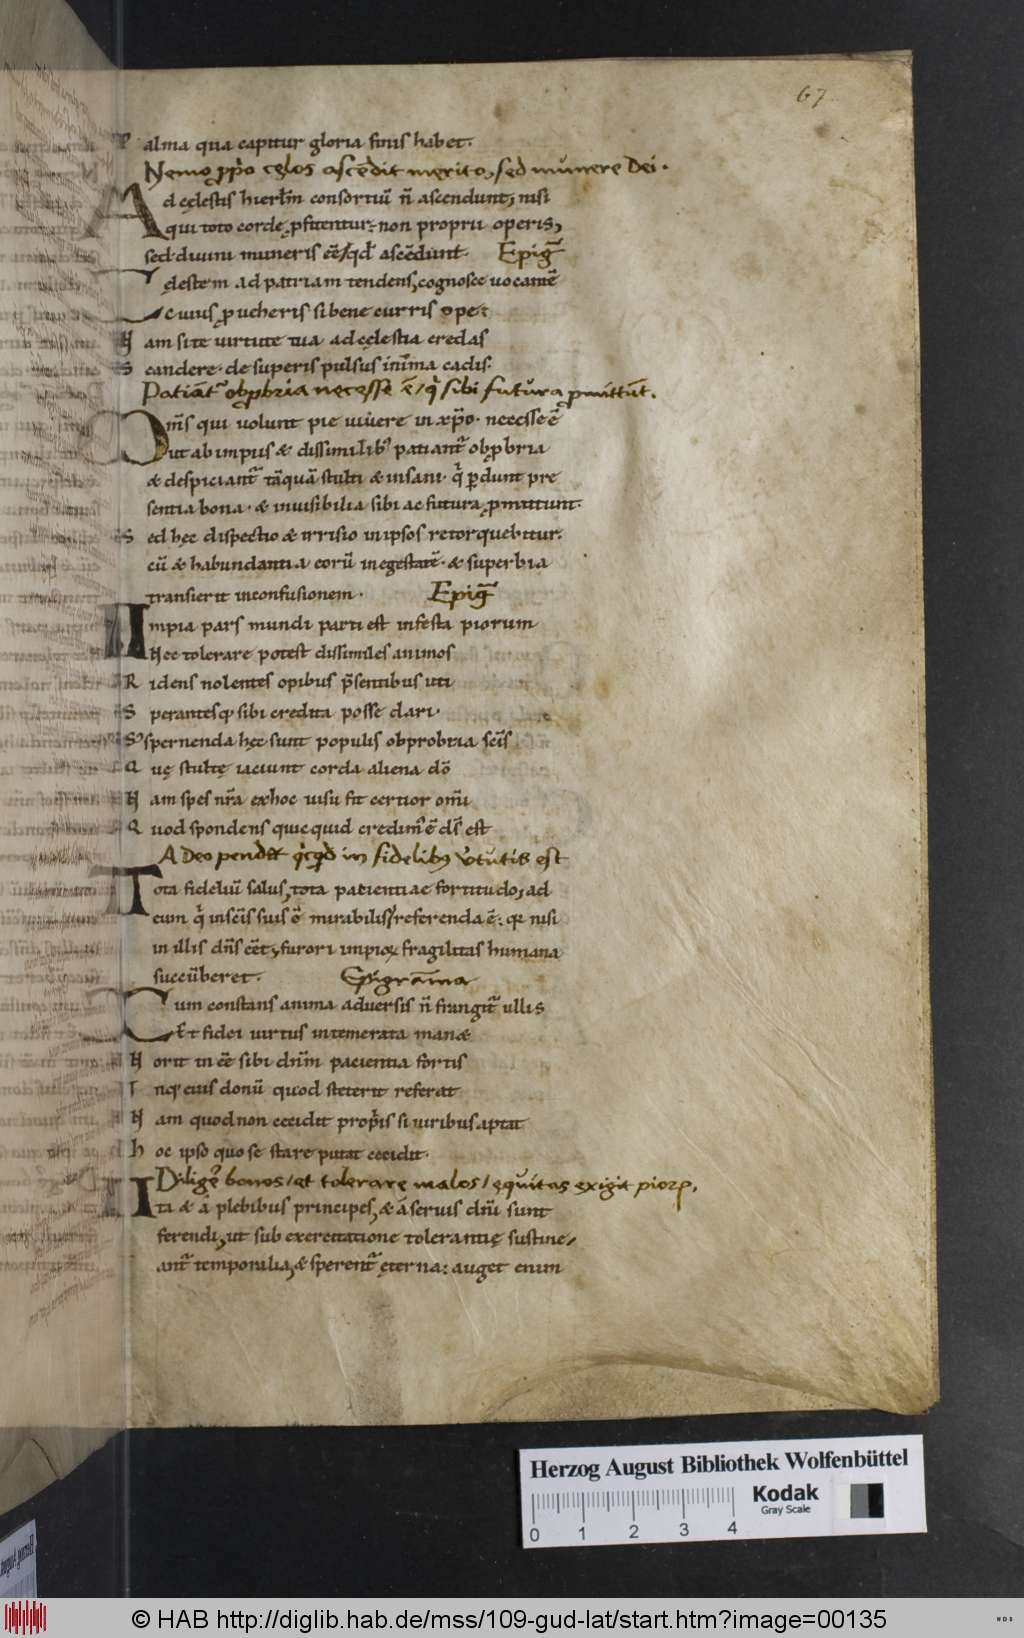 67
Palma qua capitur gloria finis habet.
Nemo ꝓp̄o cęlos ascēdit merito, sed munere Dei.
Ad cęlestis hierl̄m consortiū n̄ ascendunt, nisi
qui toto corde ꝓfitentur, non proprii operis,
sed divini muneris eē qd̄ ascēdunt. Epig̃
Cęlestem ad patriam tendens, cognosce vocantē
cuius, ꝓveheris si bene curris ope.
Nam si te virtute tua ad cęlestia credas
Scandere. de superis pulsus in īma cadis.
Patiānt̄ obp̄bria necesse ē / q̄ sibi futura ꝓmittūt.
Om̄s qui volunt pie vivere in xp̄o. necesse ē
ut ab impiis & dissimilib' patiant̄ obp̄bria
& despiciant̄ tāquā stulti & insani. q̄ ꝑdunt pre
sentia bona. & invisibilia sibi ac futura ꝓmittunt.
Sed hęc dispectio & irrisio in ipsos retorquebitur.
cū & habundantia eorū in egestatē. & superbia
transierit in confusionem. Epig̃
Impia pars mundi parti est infesta piorum
Nec tolerare potest dissimiles animos
Ridens nolentes opibus p̄sentibus uti
Sperantesq; sibi credita posse dari.
Spernenda hęc sunt populis obprobria sc̄is
Quę stultę iaciunt corda aliena dō
Nam spes nr̄a ex hoc visu fit certior om̄i
Quod spondens quicquid credim' ē ds̄ est
A Deo pendet q̄cq̄d in fidelib; v̄tutis est
Tota fideliū salus, tota pacientiae fortitudo, ad
eum q̄ in sc̄is suis ē mirabilis, referenda ē: quia nisi
in illis dn̄s eēt, furori impioꝝ fragilitas humana
succūberet. Epigram̄a
Cum constans anima adversis n̄ frangit̄ ullis
Et fidei virtus intemerata man&
Norit in eē sibi dn̄m pacientia fortis
Inq; eius donū quod steterit referat
Nam quod non cecidit propr̄is si viribus aptat
Hoc ipso quo se stare putat cecidit.
Diligere bonos / et tolerare malos / ęquitas exigit pioꝝ.
Ita & a plebibus principes, & a servis dn̄i sunt
ferendi, ut sub exercitatione tolerantię sustine/
ant̄ temporalia, & sperent̄ ęterna: auget enim
Herzog August Bibliothek Wolfenbüttel
Kodak
Gray Scale
0 1 2 3 4
© HAB http://diglib.hab.de/mss/109-gud-lat/start.htm?image=00135